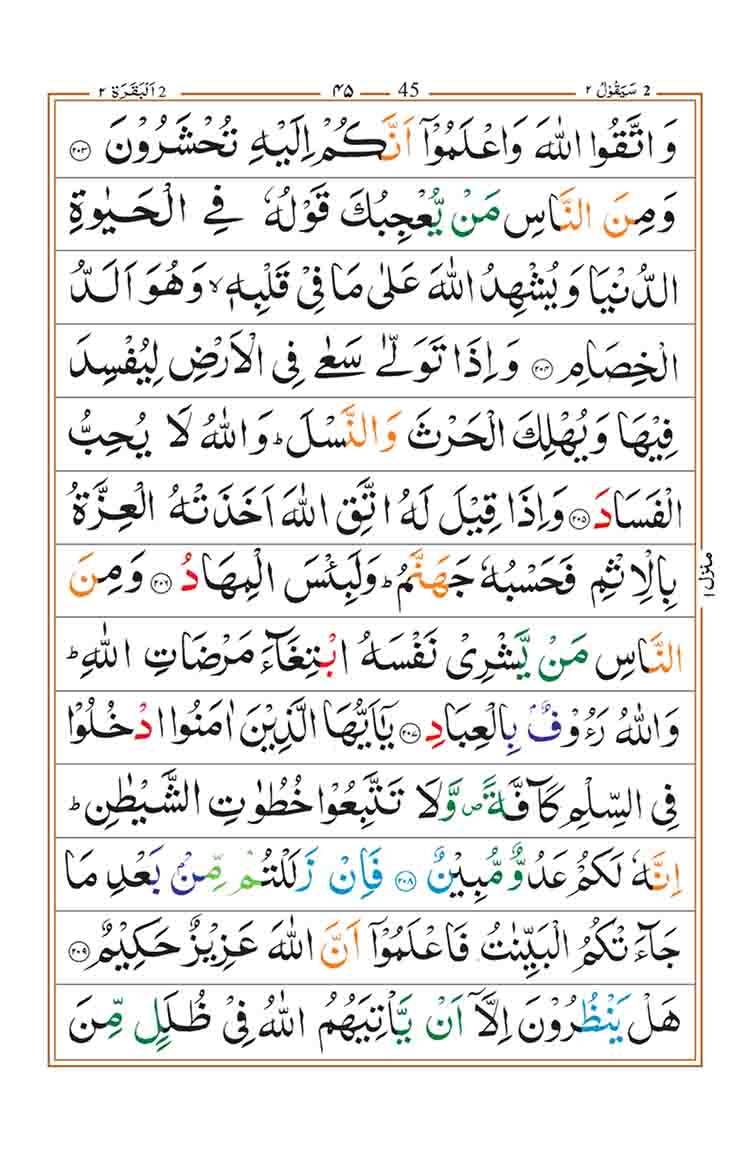 2 سَيَقُوۡلُ ٢ 45 ۴۵ 2 اَلۡبَقَرَة ٢
وَ اتَّقُوا اللّٰهَ وَاعۡلَمُوۡٓا اَنَّكُمۡ اِلَيۡهِ تُحۡشَرُوۡنَ ۝۲۰۳
وَمِنَ النَّاسِ مَنۡ يُّعۡجِبُكَ قَوۡلُهٗ فِى الۡحَيٰوةِ
الدُّنۡيَا وَيُشۡهِدُ اللّٰهَ عَلٰى مَا فِىۡ قَلۡبِهٖۙ وَهُوَ اَلَدُّ
الۡخِصَامِ ۝۲۰۴ وَاِذَا تَوَلّٰى سَعٰى فِى الۡاَرۡضِ لِيُفۡسِدَ
فِيۡهَا وَيُهۡلِكَ الۡحَرۡثَ وَالنَّسۡلَؕ وَاللّٰهُ لَا يُحِبُّ
الۡفَسَادَ ۝۲۰۵ وَاِذَا قِيۡلَ لَهُ اتَّقِ اللّٰهَ اَخَذَتۡهُ الۡعِزَّةُ
بِالۡاِثۡمِ فَحَسۡبُهٗ جَهَنَّمُؕ وَلَبِئۡسَ الۡمِهَادُ ۝۲۰۶ وَمِنَ
النَّاسِ مَنۡ يَّشۡرِىۡ نَفۡسَهُ ابۡتِغَآءَ مَرۡضَاتِ اللّٰهِؕ
وَاللّٰهُ رَءُوۡفٌۢ بِالۡعِبَادِ ۝۲۰۷ يٰٓاَيُّهَا الَّذِيۡنَ اٰمَنُوا ادۡخُلُوۡا
فِى السِّلۡمِ كَآفَّةً ص وَّلَا تَتَّبِعُوۡا خُطُوٰتِ الشَّيۡطٰنِؕ
اِنَّهٗ لَكُمۡ عَدُوٌّ مُّبِيۡنٌ ۝۲۰۸ فَاِنۡ زَلَلۡتُمۡ مِّنۡۢ بَعۡدِ مَا
جَآءَتۡكُمُ الۡبَيِّنٰتُ فَاعۡلَمُوۡٓا اَنَّ اللّٰهَ عَزِيۡزٌ حَكِيۡمٌ ۝۲۰۹
هَلۡ يَنۡظُرُوۡنَ اِلَّاۤ اَنۡ يَّاۡتِيَهُمُ اللّٰهُ فِىۡ ظُلَلٍ مِّنَ
منزل ١